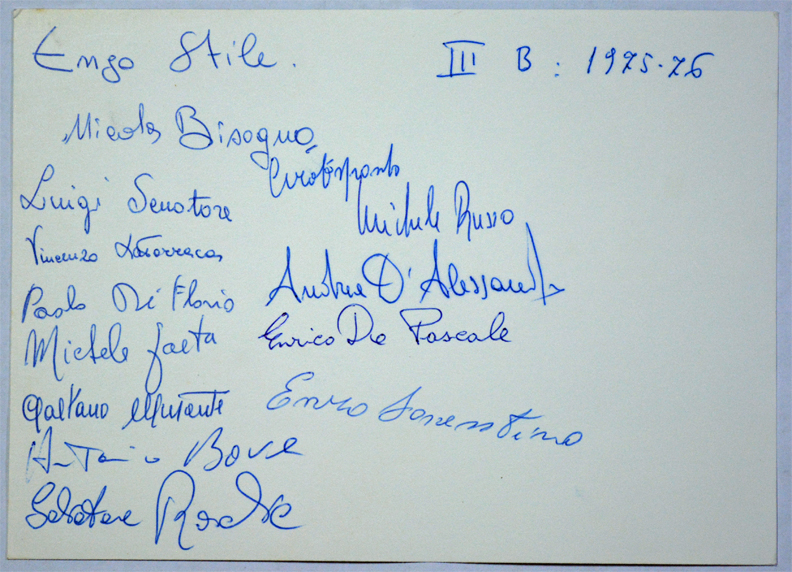 Enzo Stile.
III B: 1975-76
Nicola Bisogno
Ciro Esposito
Luigi Senatore
Michele Russo
Vincenzo Latorraca
Andrea D'Alessandro
Paolo Di Florio
Enrico De Pascale
Michele Gaeta
Gaetano
Enrico Sorrentino
Antonio Bove
Salvatore